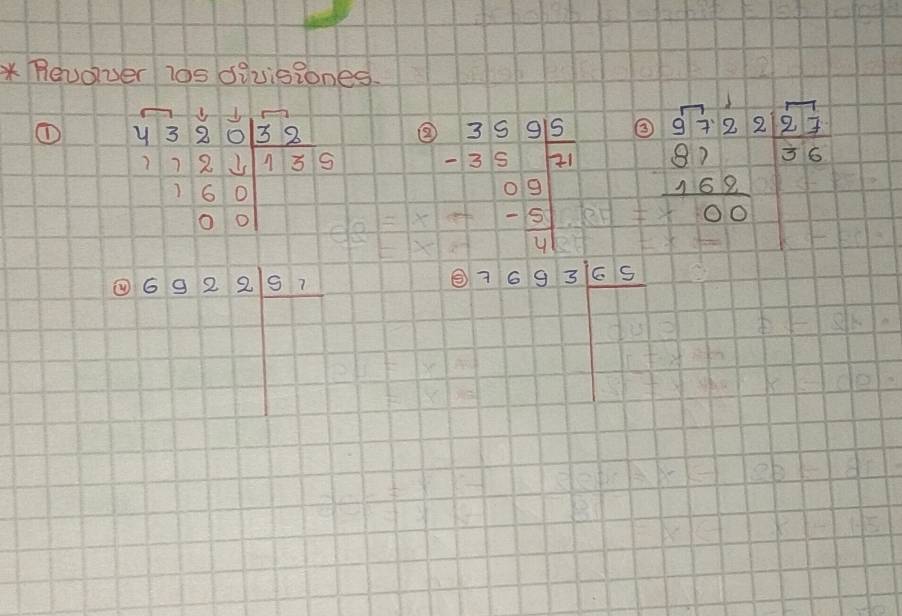 * Revolver los divisiones.
① 4320 | 32
112 | 135
160
00
② 359 | 5
- 35 | 71
09
- 5
4
③ 9722 | 27
81 | 36
162
00
④ 6922 | 51
⑤ 7693 | 65